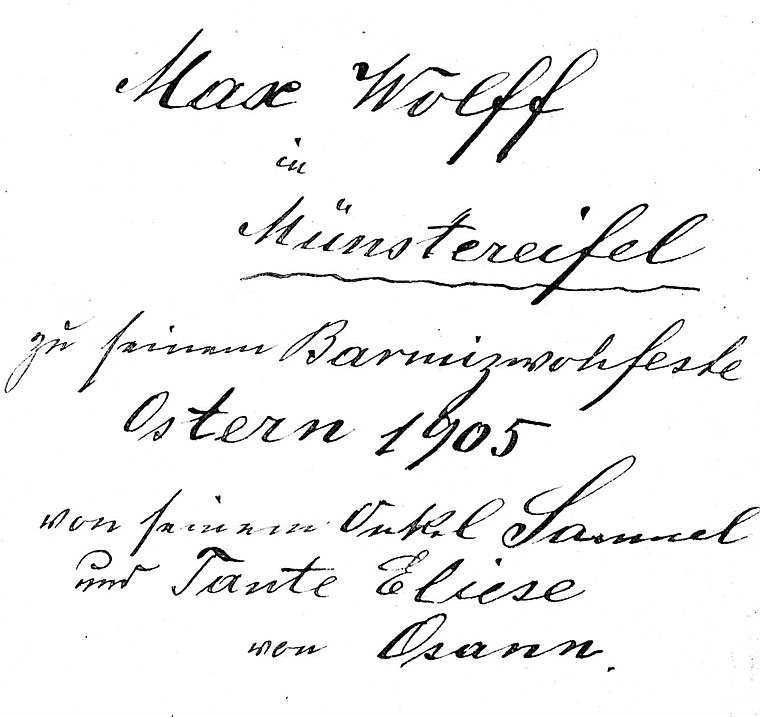 Max Wolff
in
Münstereifel
zu seinem Barmizwohfeste
Ostern 1905
von seinem Onkel Samuel
und Tante Eliese
von Osann.